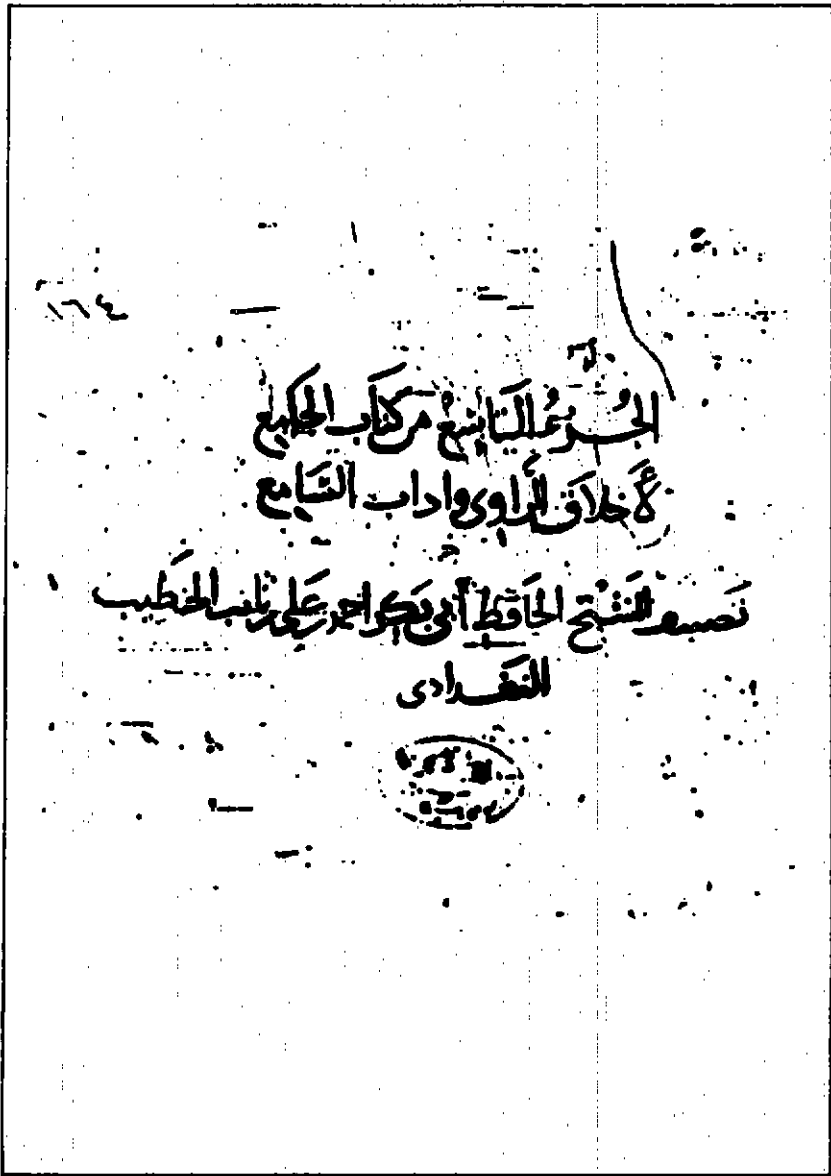 ١٦٤
الجزء التاسع من كتاب الجامع
لأخلاق الراوي واداب السامع
تصنيف الشيخ الحافظ أبي بكر احمد بن علي بن ثابت الخطيب
البغدادي